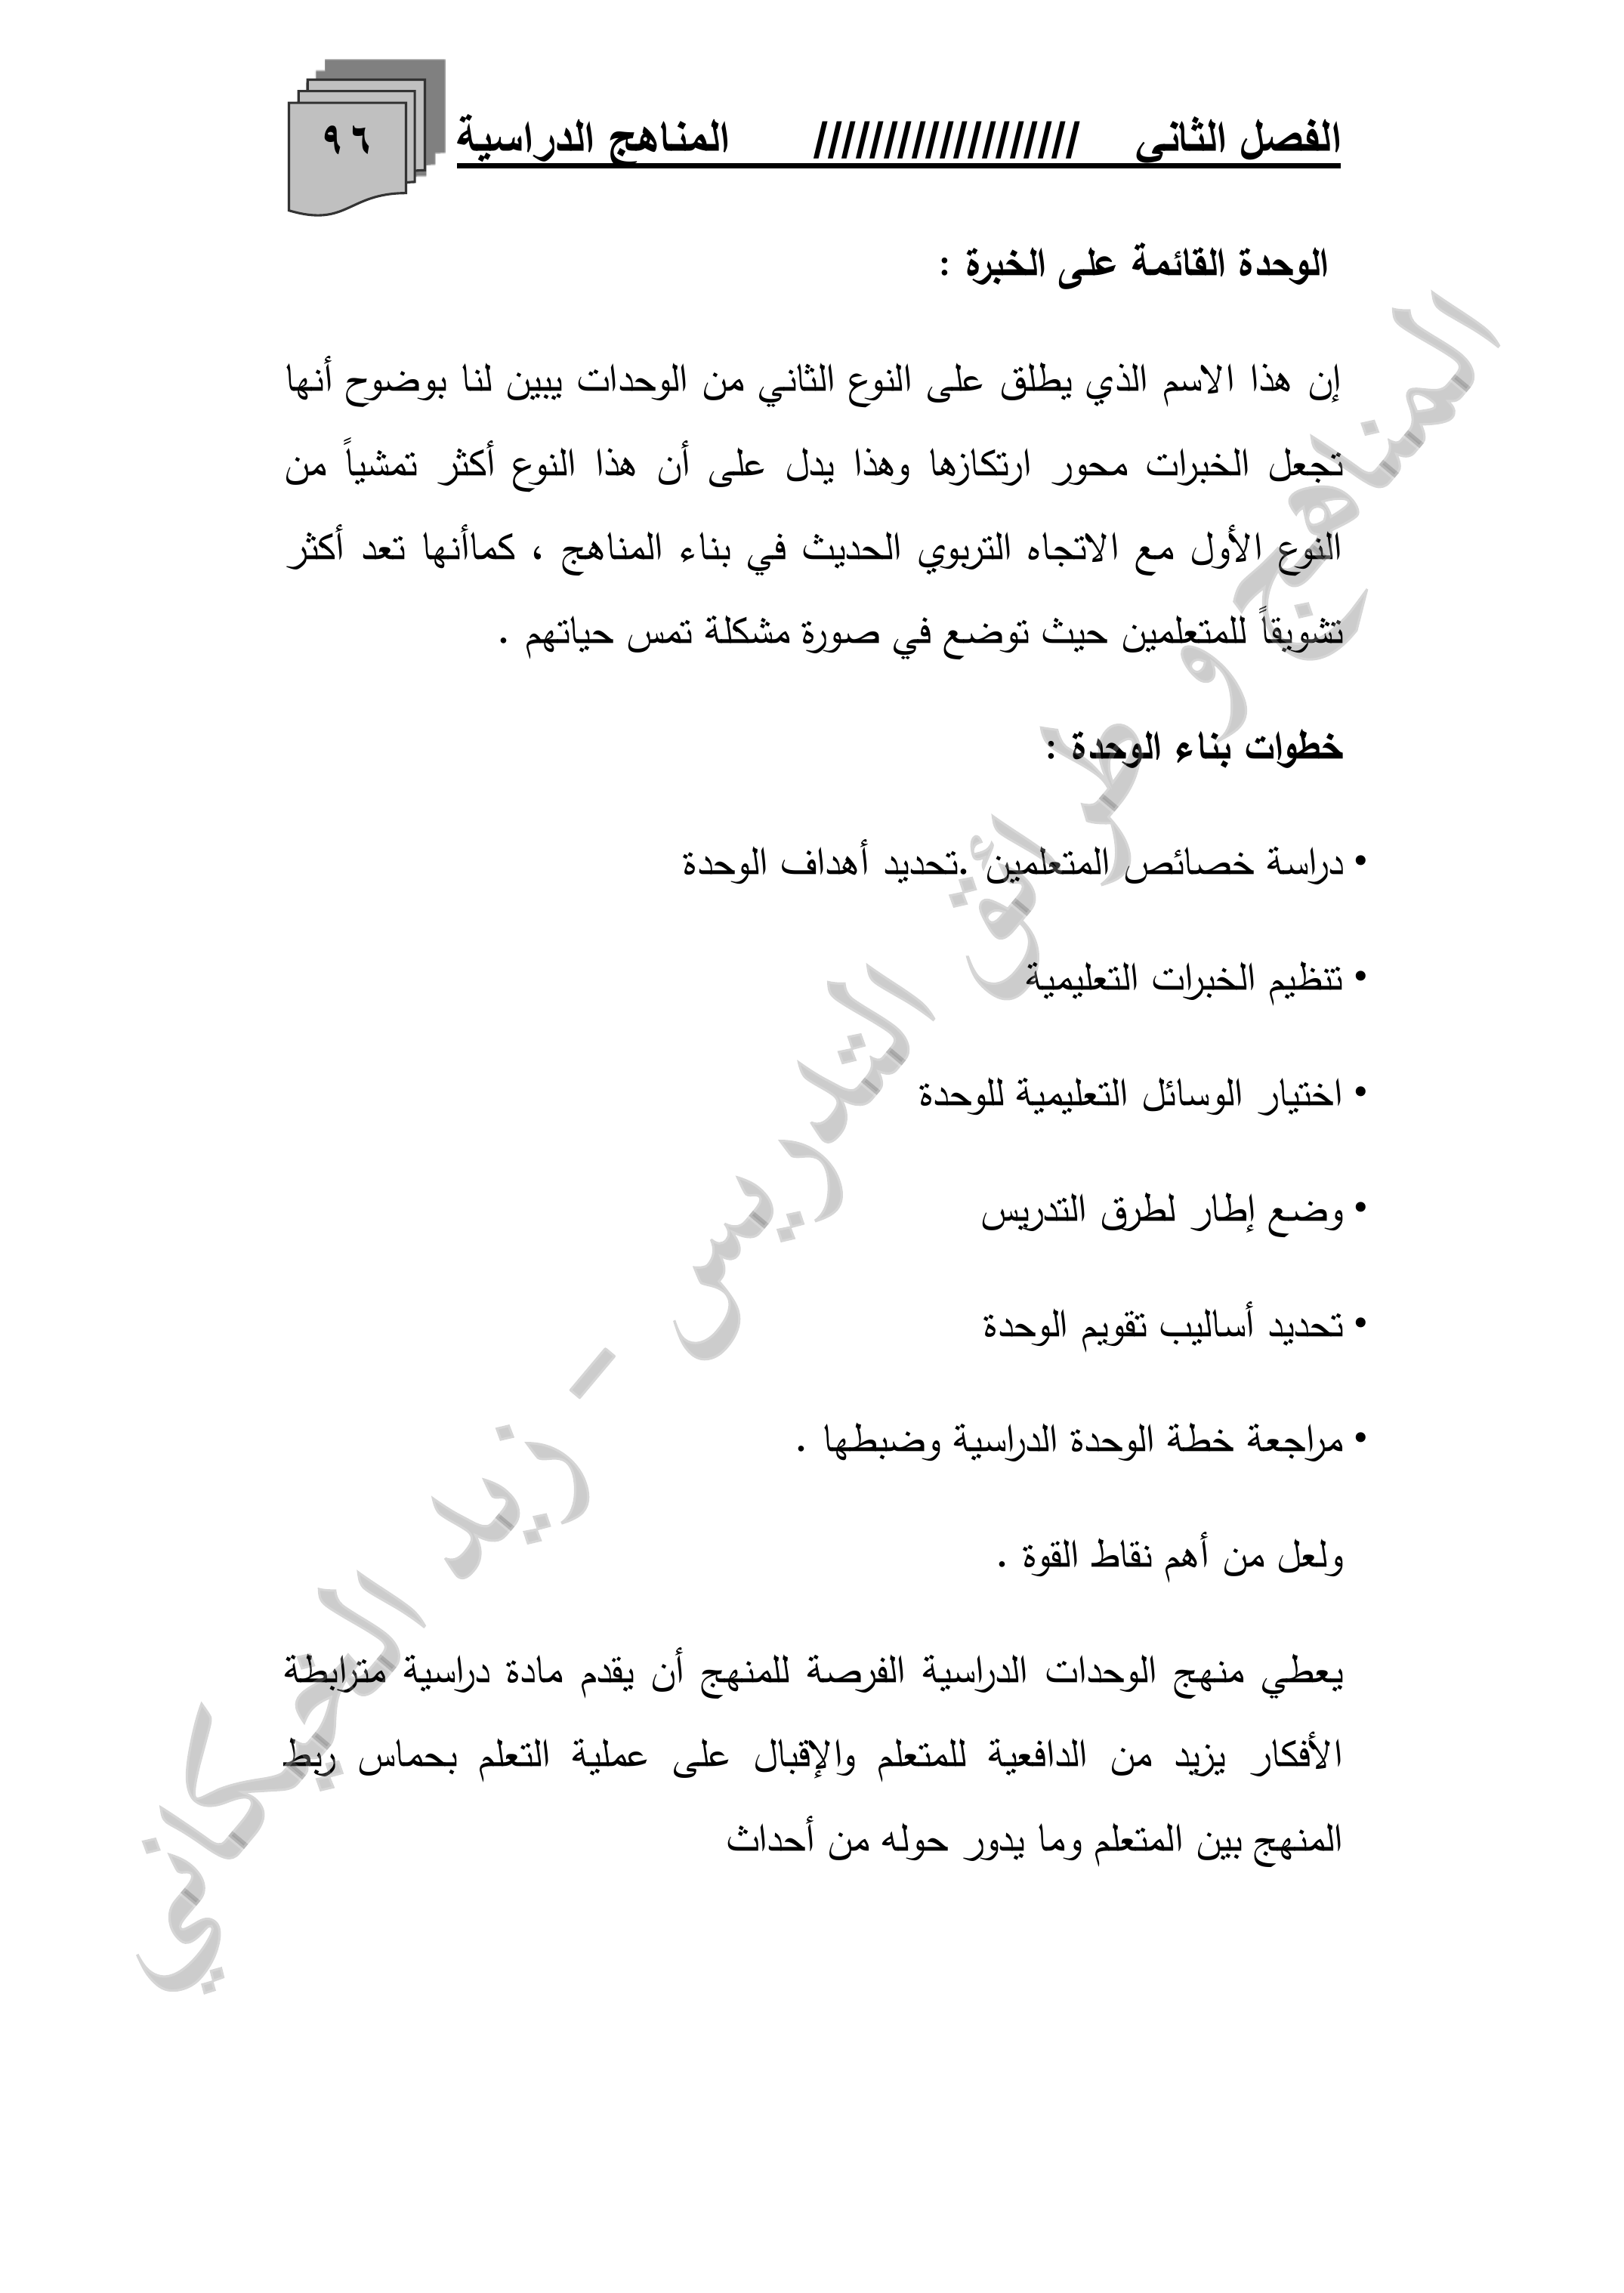 الفصل الثاني /////////////////// المناهج الدراسية ٩٦
الوحدة القائمة على الخبرة :
إن هذا الاسم الذي يطلق على النوع الثاني من الوحدات يبين لنا بوضوح أنها
تجعل الخبرات محور ارتكازها وهذا يدل على أن هذا النوع أكثر تمشياً من
النوع الأول مع الاتجاه التربوي الحديث في بناء المناهج ، كماأنها تعد أكثر
تشويقاً للمتعلمين حيث توضع في صورة مشكلة تمس حياتهم .
خطوات بناء الوحدة :
• دراسة خصائص المتعلمين .تحديد أهداف الوحدة
• تنظيم الخبرات التعليمية
• اختيار الوسائل التعليمية للوحدة
• وضع إطار لطرق التدريس
• تحديد أساليب تقويم الوحدة
• مراجعة خطة الوحدة الدراسية وضبطها .
ولعل من أهم نقاط القوة .
يعطي منهج الوحدات الدراسية الفرصة للمنهج أن يقدم مادة دراسية مترابطة
الأفكار يزيد من الدافعية للمتعلم والإقبال على عملية التعلم بحماس ربط
المنهج بين المتعلم وما يدور حوله من أحداث
المناهج و طرائق التدريس - زيد الخيكاني